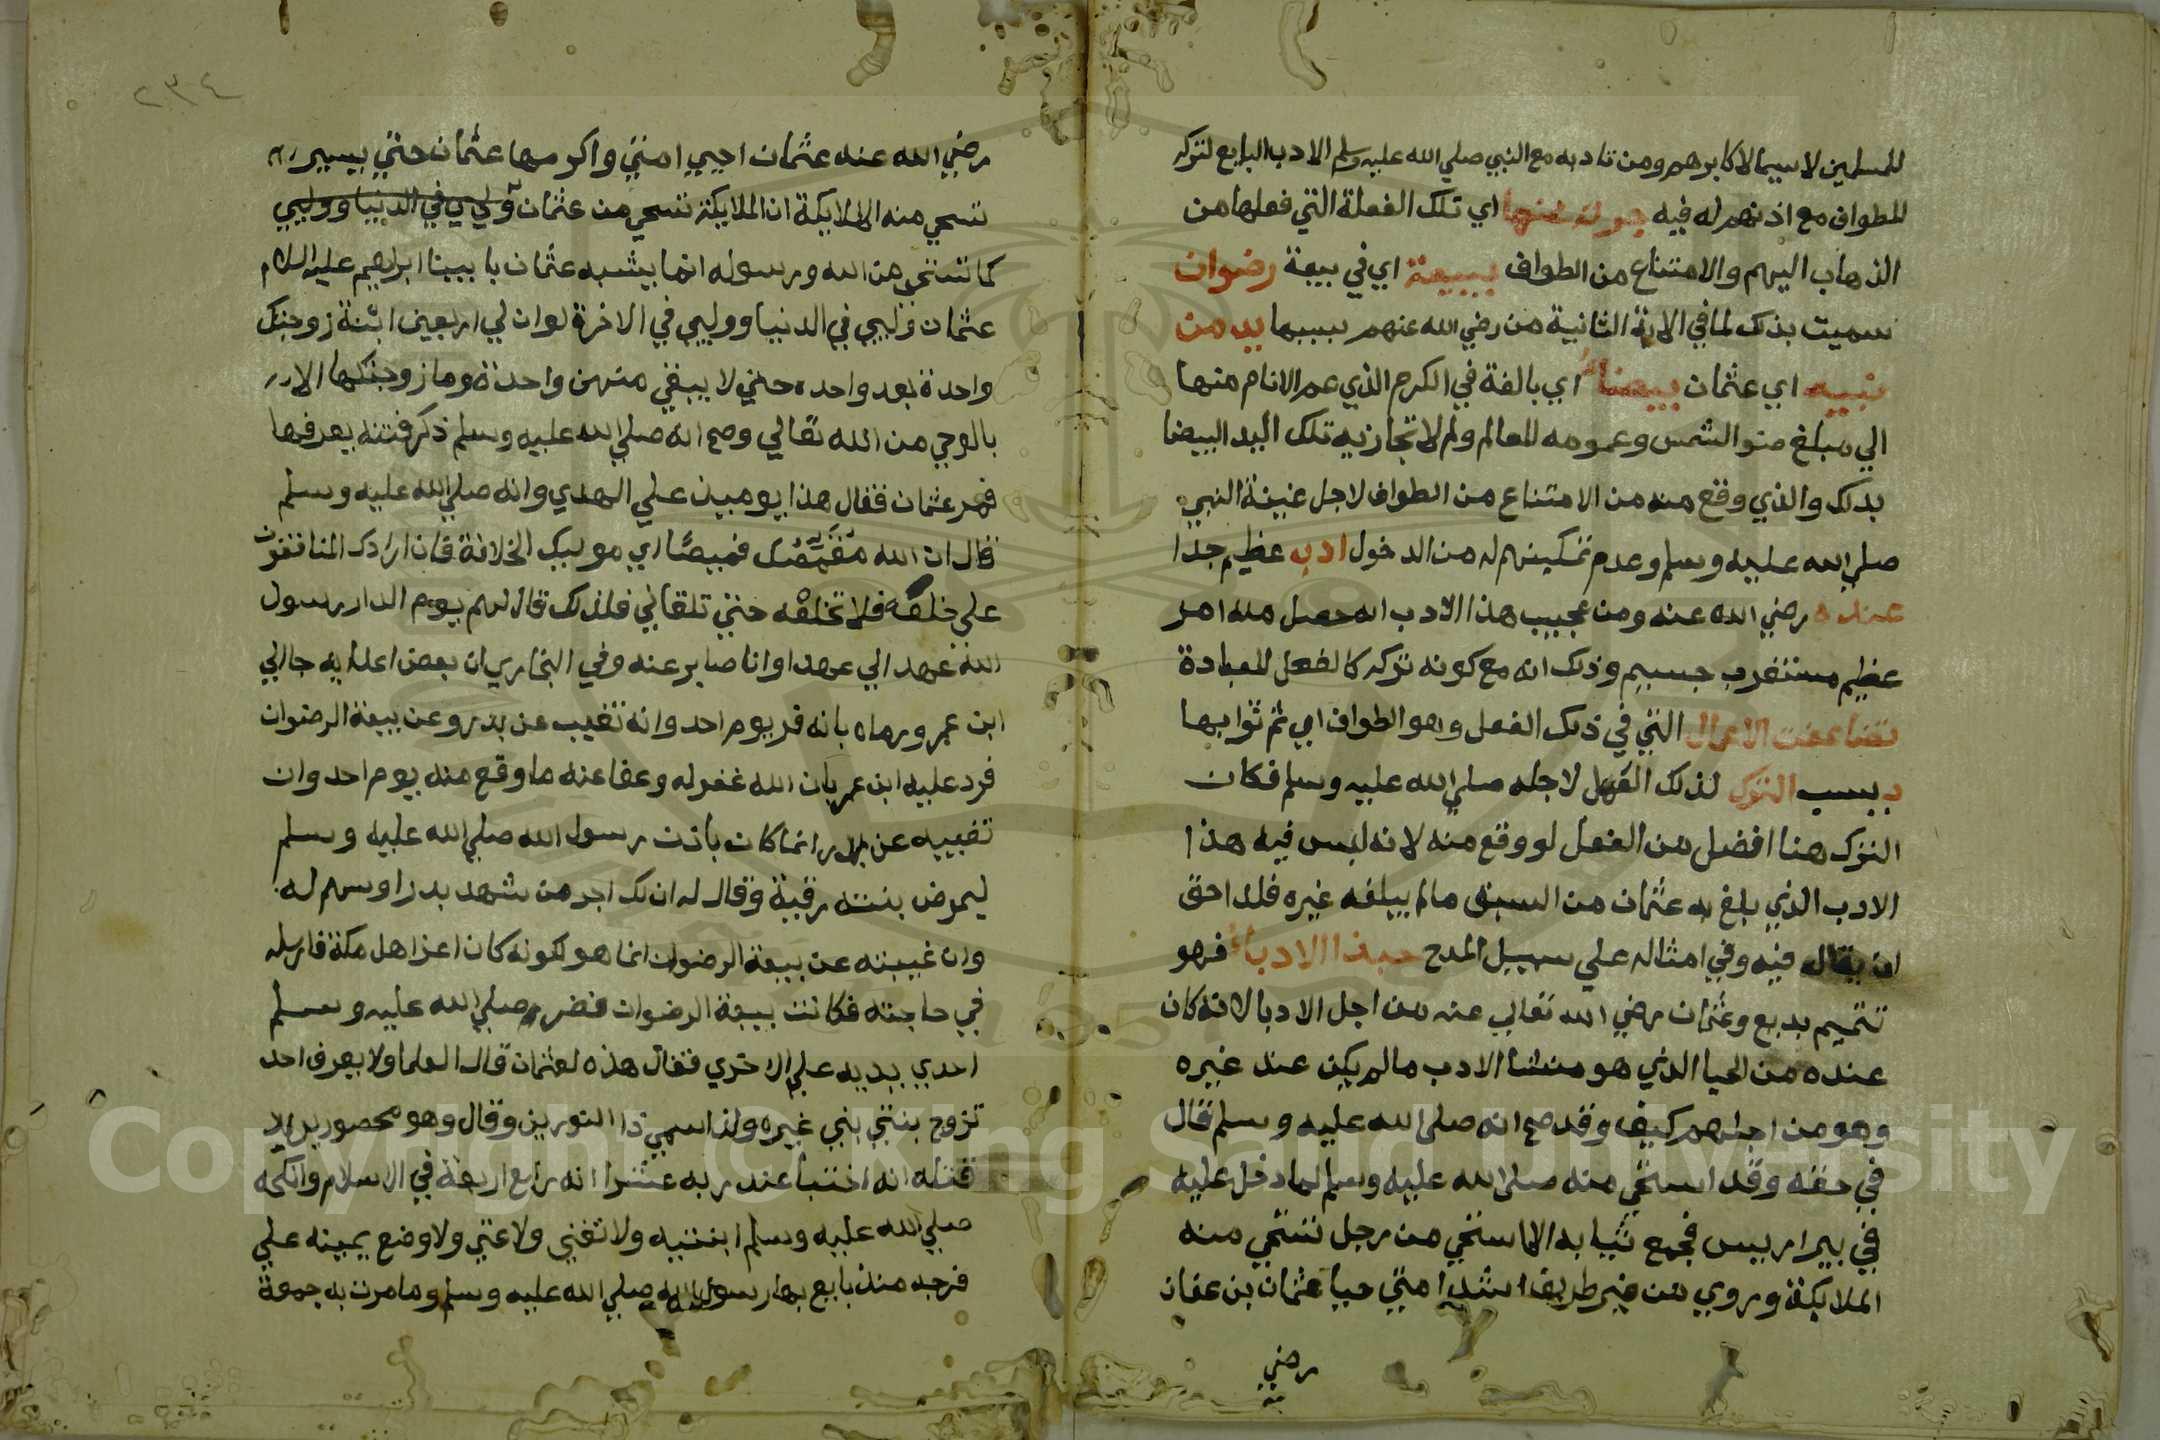 للمسلمين لاسيما لاكابرهم ومن تادبه مع النبي صلي الله عليه وسلم الادب البايع لتركه
للطواف مع اذنهم له فيه اي تلك الفعلة التي فعلها من
الذهاب اليهم والامتناع من الطواف ببيعة اي في بيعة رضوان
سميت بذلك لما في الاية الثانية من رضي الله عنهم بسببها يد من
نبيه اي عثمان بيضاء اي بالغة في الكرم الذي عم الانام منها
الي مبلغ ضوء الشمس وعمومه للعالم ولم لا تجازيه تلك اليد البيضا
بذلك والذي وقع منه من الامتناع من الطواف لاجل غيبة النبي
صلي الله عليه وسلم وعدم تمكينهم له من الدخول ادب عظيم جدا
عنده رضي الله عنه ومن عجيب هذا الادب انه حصل منه امر
عظيم مستغرب جسيم وذلك انه مع كونه تركه كالفعل للعبادة
تضاعفت الاعمال التي في ذلك الفعل وهو الطواف اي ثم ثوابها
بسبب الترك لذلك الفعل لاجله صلي الله عليه وسلم فكان
الترك هنا افضل من الفعل لو وقع منه لانه ليس فيه هذا
الادب الذي بلغ به عثمان من السبق مالم يبلغه غيره فلذا حق
ان يقال فيه وفي امثاله علي سبيل المدح حبذا الادباء فهو
تتميم بديع وعثمان رضي الله تعالي عنه من اجل الادبا لانه كان
عنده من الحيا الذي هو منشا الادب مالم يكن عند غيره
وهو من اجلهم كيف وقد صح انه صلي الله عليه وسلم قال
في حقه وقد استحي منه صلي الله عليه وسلم لما دخل عليه
في بير اريس فجمع ثيابه الا استحي من رجل تستحي منه
الملايكة وروي من غير طريق اشد امتي حيا عثمان بن عفان
رضي
٢٣٤
رضي الله عنه عثمان احيي امتي واكرمها عثمان حيي ستير
تستحي منه الملايكة ان الملايكة تستحي من عثمان وليي في الدنيا ووليي
كما تستحي من الله ورسوله انما يشبه عثمان بابينا ابراهيم عليه السلام
عثمان وليي في الدنيا ووليي في الاخرة لو ان لي اربعين ابنة زوجتك
واحدة بعد واحده حتي لا يبقي منهن واحدة وما زوجتكها الا
بالوحي من الله تعالي وصح انه صلي الله عليه وسلم ذكر فتنة يعرفها
فمر عثمان فقال هذا يوميذ علي الهدي وانه صلي الله عليه وسلم
قال ان الله مقمصك قميصا اي موليك الخلافة فان ارادك المنافقون
علي خلعه فلا تخلعه حتي تلقاني فلذلك قال لهم يوم الدار رسول
الله عهد الي عهدا وانا صابر عنه وفي البخاري ان بعض اعدايه جا الي
ابن عمر ورماه بانه فر يوم احد وانه تغيب عن بدر وعن بيعة الرضوان
فرد عليه ابن عمر بان الله غفر له وعفا عنه ما وقع منه يوم احد وان
تغيبه عن بدر انما كان باذن رسول الله صلي الله عليه وسلم
ليمرض بنته رقية وقال له ان لك اجر من شهد بدرا وسهم له
وان غيبته عن بيعة الرضوان انما هو لكونه كان اعز اهل مكة فارسله
في حاجته فكانت بيعة الرضوان فضرب صلي الله عليه وسلم
احدي يديه علي الاخري فقال هذه لعثمان قال العلما ولا يعرف احد
تزوج بنتي نبي غيره ولذا سمي ذا النورين وقال وهو محصور يريد
قتله انه اختبا عند ربه عشرا انه رابع اربعة في الاسلام وانكحه
صلي الله عليه وسلم ابنتيه ولا تغني ولا عتي ولا وضع يمينه علي
فرجه منذ بايع بها رسول الله صلي الله عليه وسلم وما مرت به جمعة